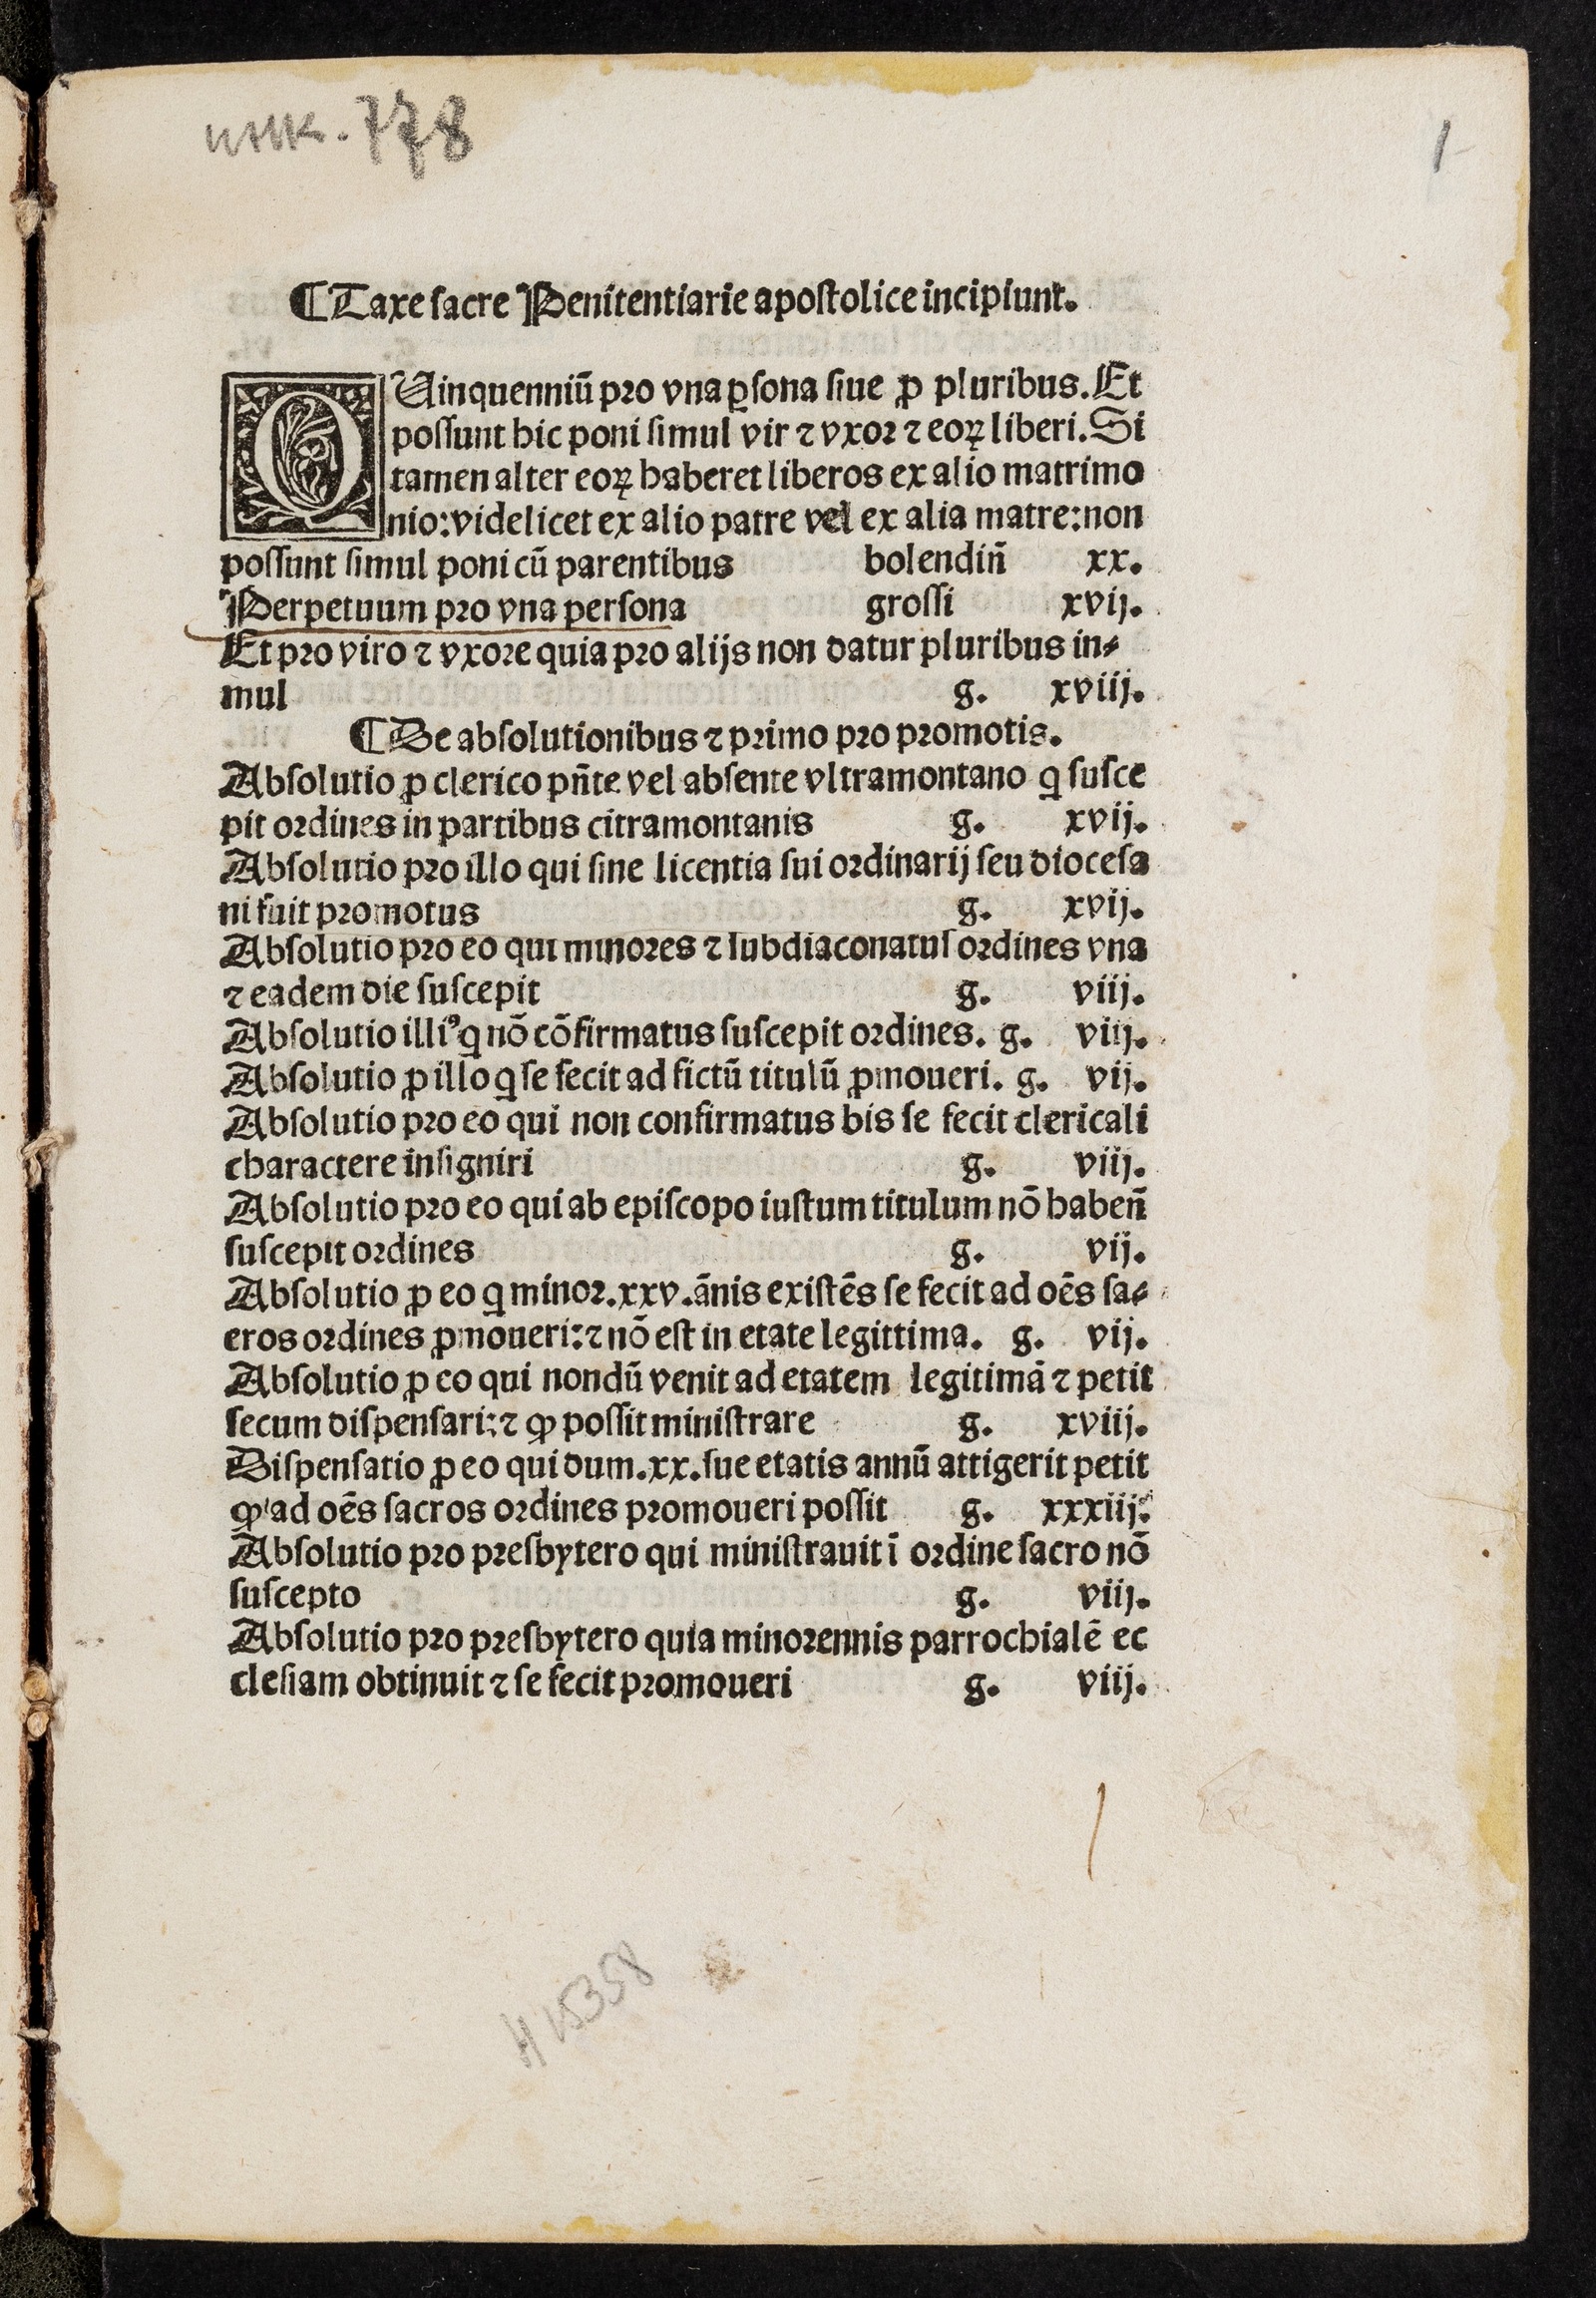 778
1
¶Taxe sacre Penitentiarie apostolice incipiunt.
QUinquenniū pro vna ꝑsona siue ꝓ pluribus. Et
possunt hic poni simul vir ⁊ vxor ⁊ eoꝝ liberi. Si
tamen alter eoꝝ haberet liberos ex alio matrimo
nio: videlicet ex alio patre vel ex alia matre: non
possunt simul poni cū parentibus bolendiñ xx.
Perpetuum pro vna persona grossi xvij.
Et pro viro ⁊ vxore quia pro alijs non datur pluribus in⸗
mul g. xviij.
¶De absolutionibus ⁊ primo pro promotis.
Absolutio ꝓ clerico pñte vel absente vltramontano ꝗ susce
pit ordines in partibus citramontanis g. xvij.
Absolutio pro illo qui sine licentia sui ordinarij seu diocesa
ni fuit promotus g. xvij.
Absolutio pro eo qui minores ⁊ subdiaconatus ordines vna
⁊ eadem die suscepit g. viij.
Absolutio illiꝰ ꝗ nō cōfirmatus suscepit ordines. g. viij.
Absolutio ꝓ illo ꝗ se fecit ad fictū titulū ꝓmoueri. g. vij.
Absolutio pro eo qui non confirmatus bis se fecit clericali
charactere insigniri g. viij.
Absolutio pro eo qui ab episcopo iustum titulum nō habeñ
suscepit ordines g. vij.
Absolutio ꝓ eo ꝗ minor. xxv. ānis existēs se fecit ad oēs sa⸗
cros ordines ꝓmoueri: ⁊ nō est in etate legittima. g. vij.
Absolutio ꝓ eo qui nondū venit ad etatem legitimā ⁊ petit
secum dispensari: ⁊ ꝙ possit ministrare g. xviij.
Dispensatio ꝓ eo qui dum. xx. sue etatis annū attigerit petit
ꝙ ad oēs sacros ordines promoueri possit g. xxxiij.
Absolutio pro presbytero qui ministrauit ī ordine sacro nō
suscepto g. viij.
Absolutio pro presbytero quia minorennis parrochialē ec
clesiam obtinuit ⁊ se fecit promoueri g. viij.
H 15358